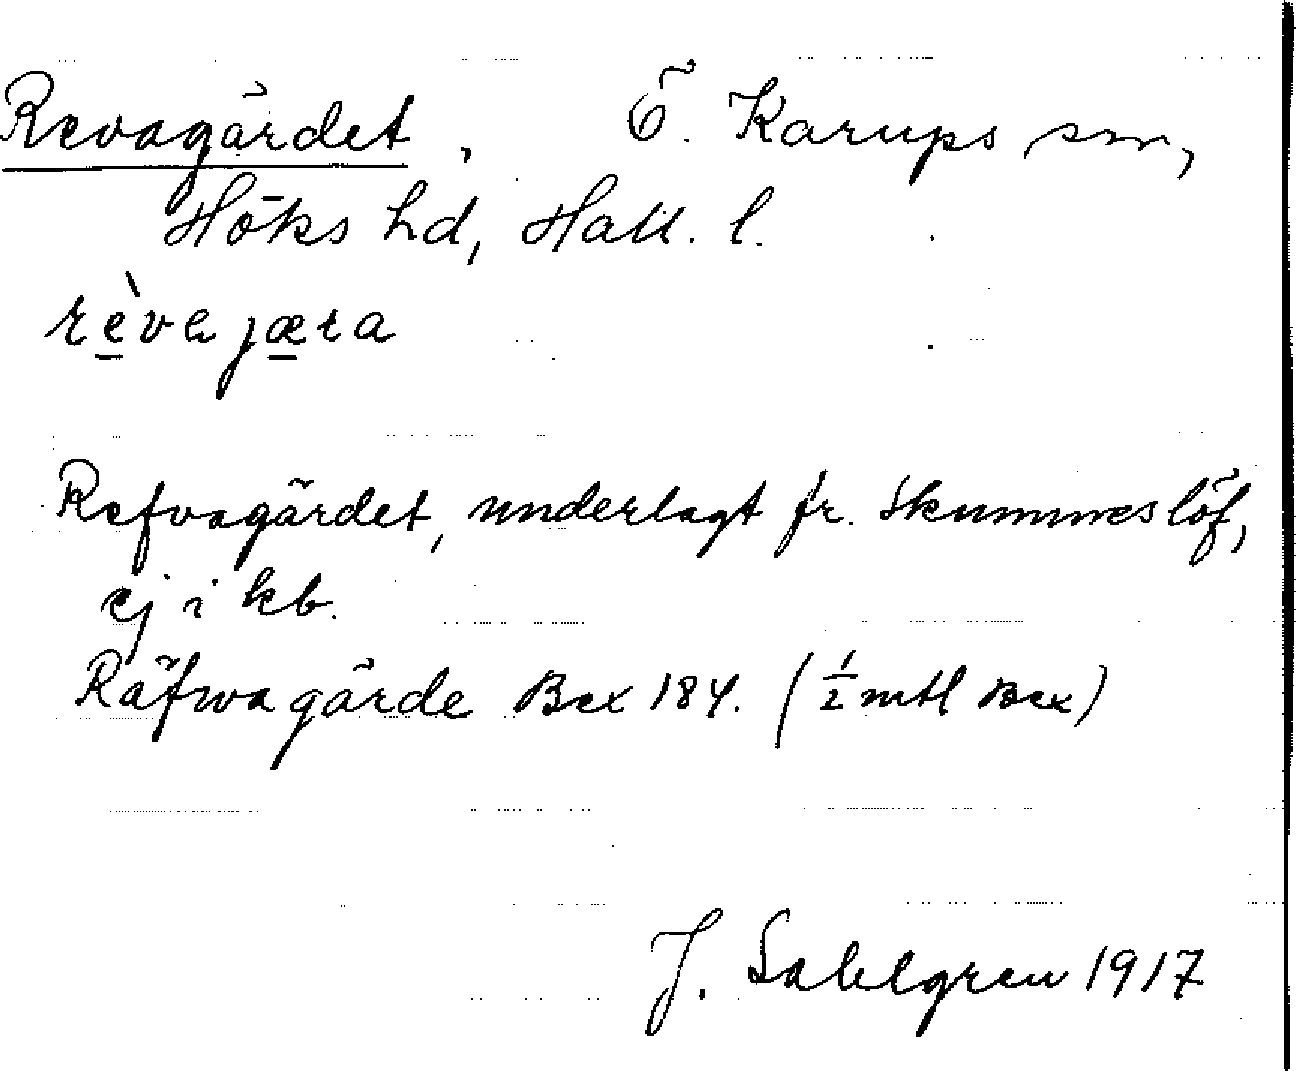 Revagärdet, Ö. Karups sn,
Höks hd, Hall. l.
rè̱vajæ̱ra
Refvagärdet, underlagt fr. Skummeslöf,
ej i kb.
Räfwagärde Bex 184. (½ mtl Bex)
J. Sahlgren 1917